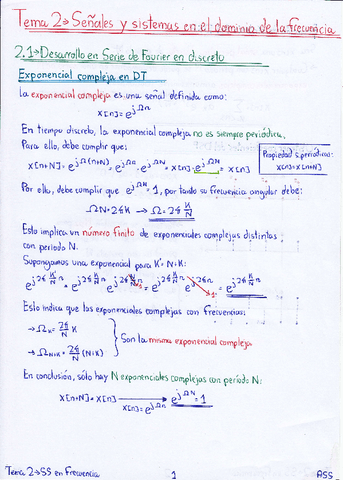 Tema 2→ Señales y sistemas en el dominio de la frecuencia
2.1→Desarrollo en Serie de Fourier en discreto
Exponencial compleja en DT
La exponencial compleja es una señal definida como:
x[n]=e^{jΩn}
En tiempo discreto, la exponencial compleja no es siempre periódica.
Para ello, debe cumplir que:
x[n+N]=e^{jΩ(n+N)}=e^{jΩn}·e^{jΩN}=x[n]·e^{jΩN}=x[n]
Propiedad s.periódicas:
x[n]=x[n+N]
Por ello, debe cumplir que e^{jΩN}=1, por tanto su frecuencia angular debe:
ΩN=2πK → Ω=2π K/N
Esto implica un número finito de exponenciales complejas distintas
con período N.
Supongamos una exponencial para K'=N+K:
Esto indica que las exponenciales complejas con frecuencias:
→Ω_K=2π/N K
→Ω_{N+K}=2π/N (N+K)
Son la misma exponencial compleja
En conclusión, sólo hay N exponenciales complejas con período N:
x[n+N]=x[n] → e^{jΩN}=1
x[n]=e^{jΩn}
Tema 2→SS en Frecuencia
1
ASS